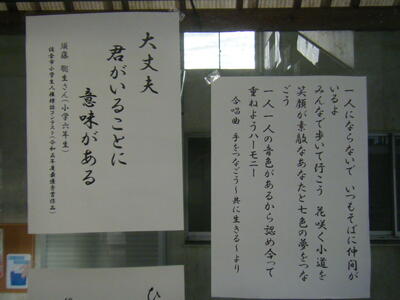 大丈夫
君がいることに
意味がある
須藤 聡生さん(小学六年生)
佐倉市小学生人権標語コンテスト(令和五年度最優秀賞作品)
一人にならないで いつもそばに仲間が
いるよ
みんなで歩いて行こう 花咲く小道を
笑顔が素敵なあなたと七色の夢をつな
ごう
一人一人の音色があるから認め合って
重ねようハーモニー
合唱曲 手をつなごう〜共に生きる〜より
ひ